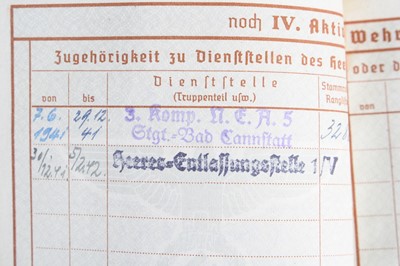 noch IV. Aktiv
Zugehörigkeit zu Dienststellen des Hee
Dienststelle
(Truppenteil usw.)
von
bis
Stamm
Rangli
7.6. 1941
29.12. 41
3. Komp. N.E.A. 5
Stgt.-Bad Cannstatt
328
30/12.41
5/2.42.
Heeres-Entlassungsstelle 1/V
Wehr
oder d